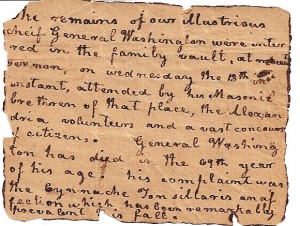 he remains of our Illustrious
cheif General Washington were inter
red in the family vault, at
vernon, on wednesday the 18th
instant, attended by his Masonic
brethren of that place, the Alexan
dria volunteers and a vast concours
of citizens. General Washing
ton has died in the 69th year
of his age. his complaint was
the Cynnache Tonsillaris an af
fection which has been remarkably
prevalent is fall